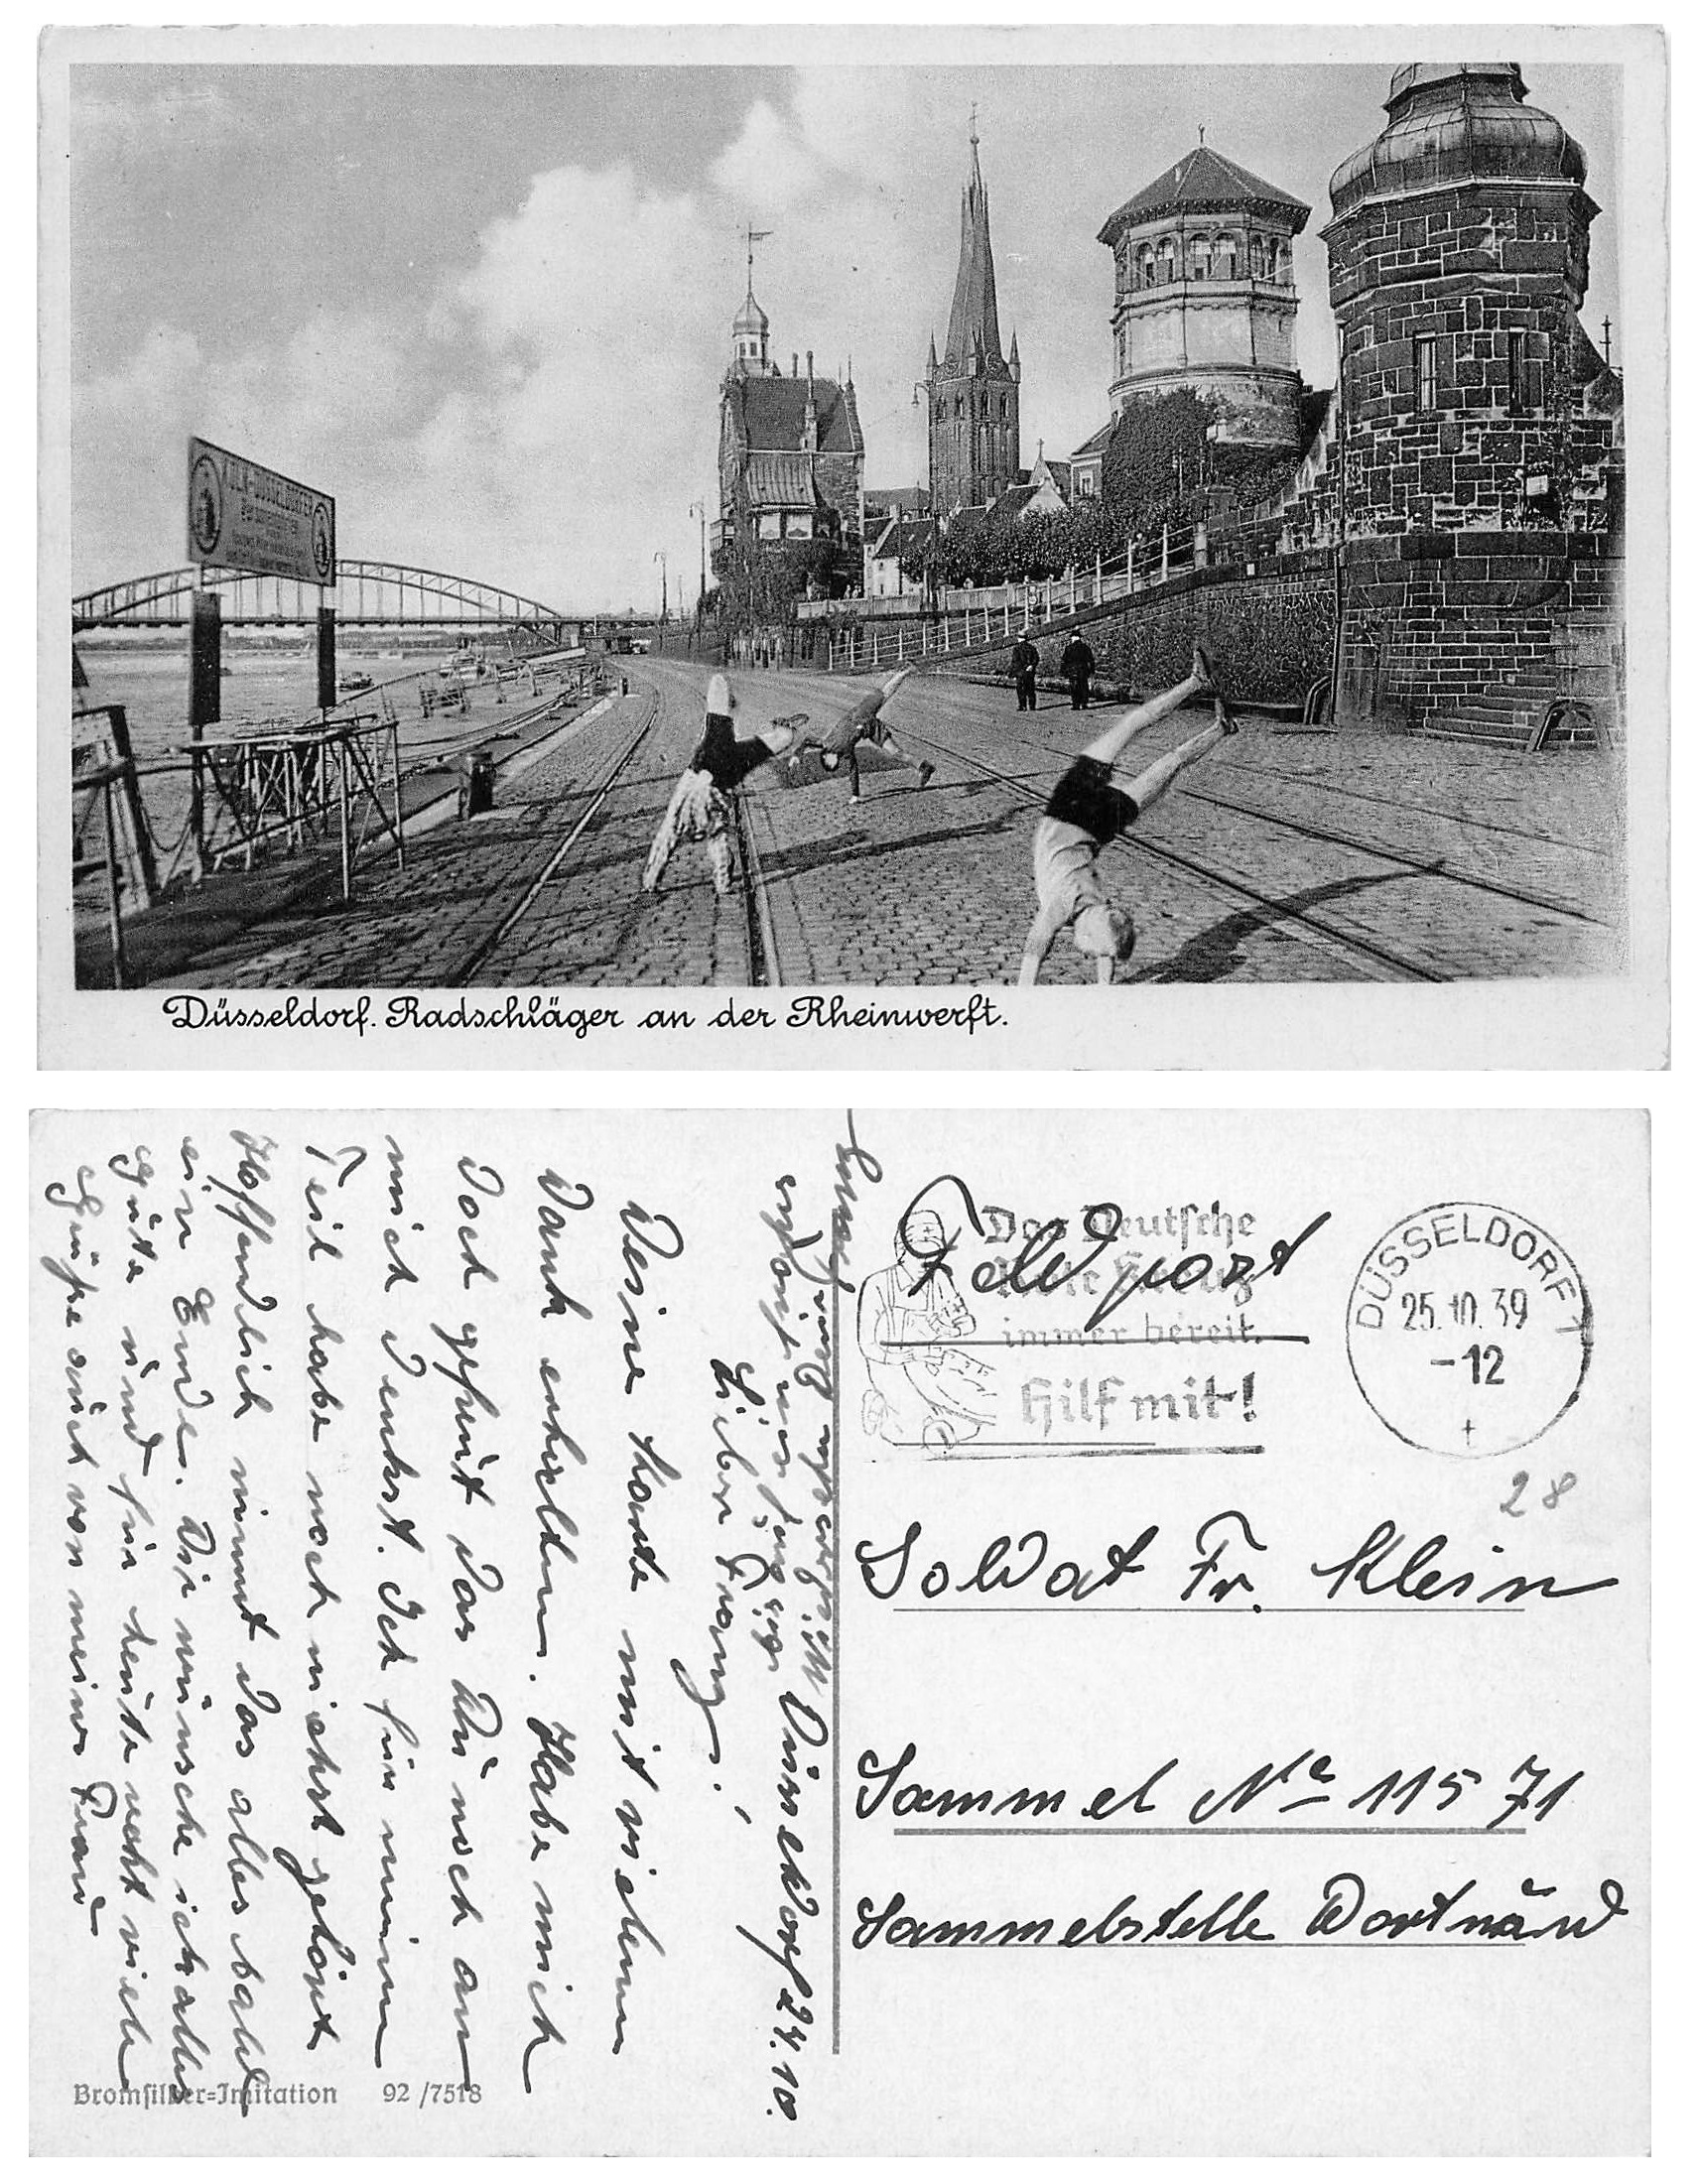 KÖLN-DÜSSELDORFER
Düsseldorf. Radschläger an der Rheinwerft.
Feldpost
Das Deutsche
Rote Kreuz
immer bereit.
Hilf mit!
DÜSSELDORF 1
25.10.39
-12
28
Soldat Fr. Klein
Sammel No 11571
Sammelstelle Dortmund
Düsseldorf 24.10.
Lieber Franz!
Deine Karte mit vielem
Dank erhalten. Habe mich
doch gefreut das Du noch an
mich denkst. Ich für meinen
Teil habe noch nichts gehört
Hoffendlich nimmt das alles bald
ein Ende. Dir wünsche ich alles
gute und für heute recht viele
Grüße auch von meine Frau
Bromsilber=Imitation 92/7518